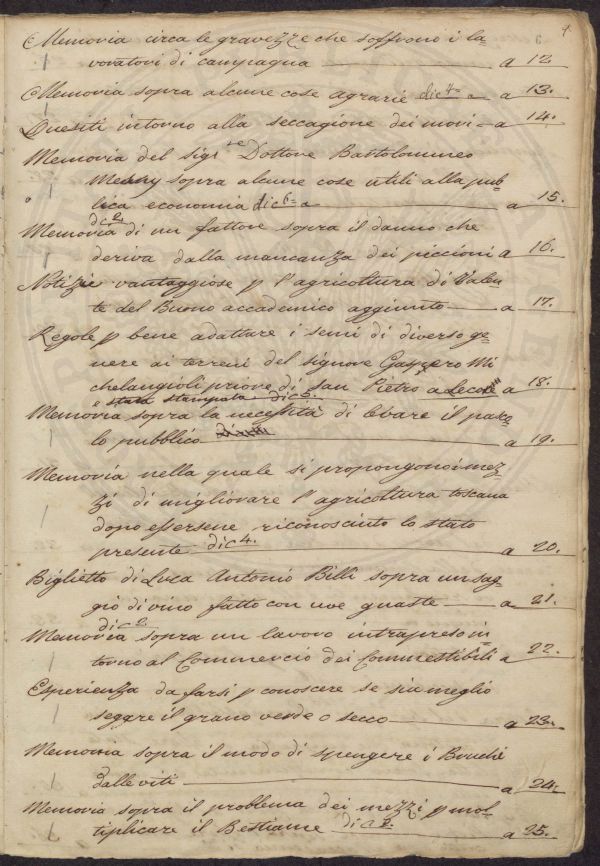 4
Memoria circa le gravezze che soffrono i la-
voratori di campagna a 12.
Memoria sopra alcune cose agrarie dic 4= a 13.
Quesiti intorno alla seccagione dei mori= a 14.
Memoria del sigre Dottore Bartolommeo
Mesny sopra alcune cose utili alla pub-
blica economia dic 6= a 15.
dic 2.
Memoria di un fattore sopra il danno che
deriva dalla mancanza dei piccioni a 16.
Notizie vantaggiose p l'agricoltura di Valen-
te del Buono accademico aggiunto a 17.
Regole p bene adattare i semi di diverso ge-
nere ai terreni del signore Gaspero Mi
chelangioli priore di san Pietro a Lecore a 18.
e stata stampata dic 5.
Memoria sopra la necessità di levare il pasco-
lo pubblico a 19.
Memoria nella quale si propongono i mez-
zi di migliorare l'agricoltura toscana
dopo essersene riconosciuto lo stato
presente dic 4. a 20.
Biglietto di Luca Antonio Billi sopra un sag-
gio di vino fatto con uve guaste a 21.
dic 2.
Memoria sopra un lavoro intrapreso in
torno al Commercio dei Commestibili a 22.
Esperienza da farsi p conoscere se sia meglio
segare il grano verde o secco a 23.
Memoria sopra il modo di spengere i Bruchi
dalle viti a 24.
Memoria sopra il problema dei mezzi p mol-
tiplicare il Bestiame dic 2. a 25.